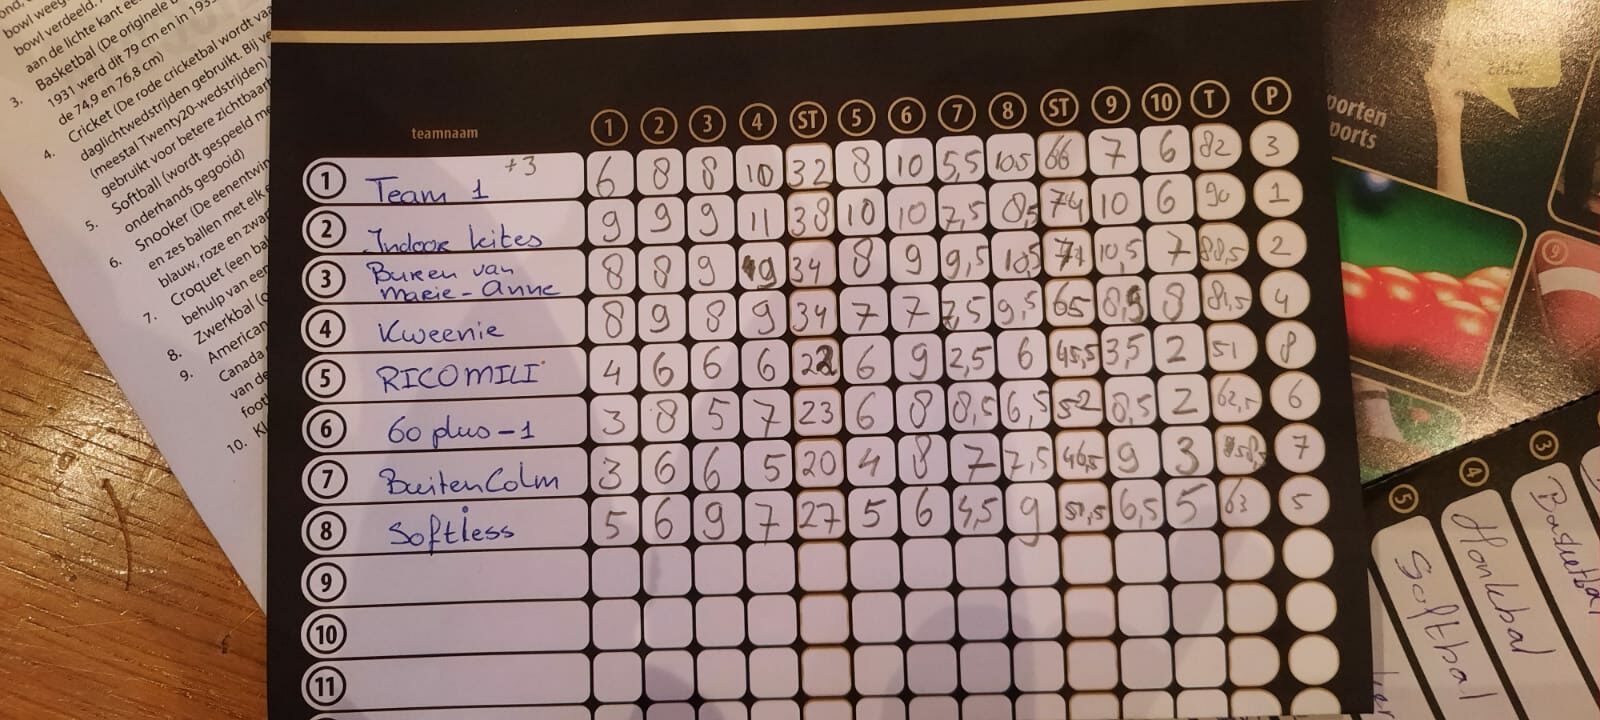 bowl verdeeld.
aan de lichte kant
3. Basketbal (De originele
1931 werd dit 79 cm en in 193
de 74,9 en 76,8 cm)
4. Cricket (De rode cricketbal wordt
daglichtwedstrijden gebruikt. Bij
(meestal Twenty20-wedstrijden)
gebruikt voor betere zichtbaar
5. Softbal (wordt gespeeld
onderhands gegooid)
6. Snooker (De eenentwin
en zes ballen met elk
blauw, roze en zwar
7. Croquet (een bal
behulp van een
8. Zwerkbal
9. American
Canada
van de
foot
10.
teamnaam 1 2 3 4 ST 5 6 7 8 ST 9 10 T P
1 Team 1 +3 6 8 8 10 32 8 10 5,5 10,5 66 7 6 82 3
2 Indoor kites 9 9 9 11 38 10 10 7,5 8,5 74 10 6 90 1
3 Buren van Marie-Anne 8 8 9 9 34 8 9 9,5 10,5 71 10,5 7 88,5 2
4 Kweenie 8 9 8 9 34 7 7 7,5 9,5 65 8,5 8 81,5 4
5 RICOMILI 4 6 6 6 22 6 9 2,5 6 45,5 3,5 2 51 8
6 60 plus-1 3 8 5 7 23 6 8 8,5 6,5 52 8,5 2 62,5 6
7 BuitenColm 3 6 6 5 20 4 8 7 7,5 46,5 9 3 58,5 7
8 Softless 5 6 9 7 27 5 6 4,5 9 51,5 6,5 5 63 5
9
10
11
porten
ports
9
3
4 Honkbal
5 Softbal